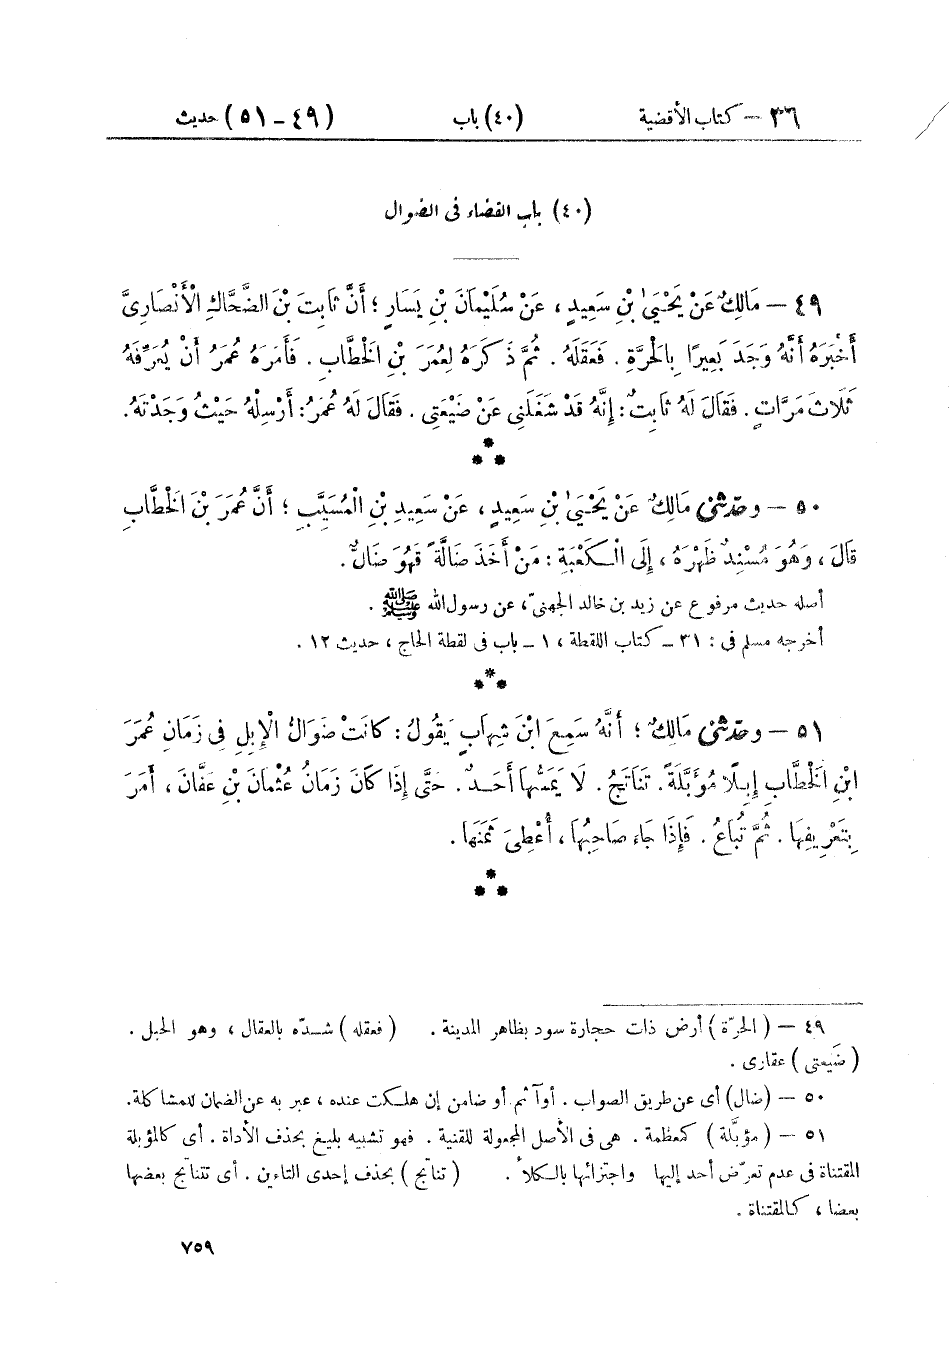 ٣٦ – كتاب الأقضية (٤٠) باب (٤٩ – ٥١) حديث
(٤٠) باب القضاء فى الضوال
٤٩ – مَالِكٌ عَنْ يَحْيَىٰ بْنِ سَعِيدٍ ، عَنْ سُلَيْمَانَ بْنِ يَسَارٍ ؛ أَنَّ ثَابِتَ بْنَ الضَّحَّاكِ الْأَنْصَارِىَّ
أَخْبَرَهُ أَنَّهُ وَجَدَ بَعِيرًا بِالْحَرَّةِ . فَعَقَلَهُ . ثُمَّ ذَكَرَهُ لِعُمَرَ بْنِ الْخَطَّابِ . فَأَمَرَهُ عُمَرُ أَنْ يُعَرِّفَهُ
ثَلَاثَ مَرَّاتٍ . فَقَالَ لَهُ ثَابِتٌ : إِنَّهُ قَدْ شَغَلَنِى عَنْ ضَيْعَتِى . فَقَالَ لَهُ عُمَرُ : أَرْسِلْهُ حَيْثُ وَجَدْتَهُ .
٥٠ – وحدّثنى مَالِكٌ عَنْ يَحْيَىٰ بْنِ سَعِيدٍ ، عَنْ سَعِيدِ بْنِ الْمُسَيَّبِ ؛ أَنَّ عُمَرَ بْنَ الْخَطَّابِ
قَالَ ، وَهُوَ مُسْنِدٌ ظَهْرَهُ ، إِلَى الْكَعْبَةِ : مَنْ أَخَذَ ضَالَّةً فَهُوَ ضَالٌّ .
أصله حديث مرفوع عن زيد بن خالد الجهنىّ ، عن رسول الله ﷺ .
أخرجه مسلم فى : ٣١ – كتاب اللقطة ، ١ – باب فى لقطة الحاج ، حديث ١٢ .
٥١ – وحدّثنى مَالِكٌ ؛ أَنَّهُ سَمِعَ ابْنَ شِهَابٍ يَقُولُ : كَانَتْ ضَوَالُّ الْإِبِلِ فِى زَمَانِ عُمَرَ
ابْنِ الْخَطَّابِ إِبِلًا مُؤَبَّلَةً . تَنَاتَجُ . لَا يَمَسُّهَا أَحَدٌ . حَتَّى إِذَا كَانَ زَمَانُ عُثْمَانَ بْنِ عَفَّانَ ، أَمَرَ
بِتَعْرِيفِهَا . ثُمَّ تُبَاعُ . فَإِذَا جَاءَ صَاحِبُهَا ، أُعْطِىَ ثَمَنَهَا .
٤٩ – (الحرّة) أرض ذات حجارة سود بظاهر المدينة . (فعقله) شدّه بالعقال ، وهو الحبل .
(ضَيعتى) عقارى .
٥٠ – (ضال) أى عن طريق الصواب . أو آثم أو ضامن إن هلكت عنده ، عبر به عن الضمان للمشاكلة .
٥١ – (مؤبَّلة) كمعظمة . هى فى الأصل المجعولة للقنية . فهو تشبيه بليغ بحذف الأداة . أى كالمؤبلة
المقتناة فى عدم تعرّض أحد إليها واجتزائها بالكلأ . (تناتج) بحذف إحدى التاءين . أى تتناتج بعضها
بعضا ، كالمقتناة .
٧٥٩